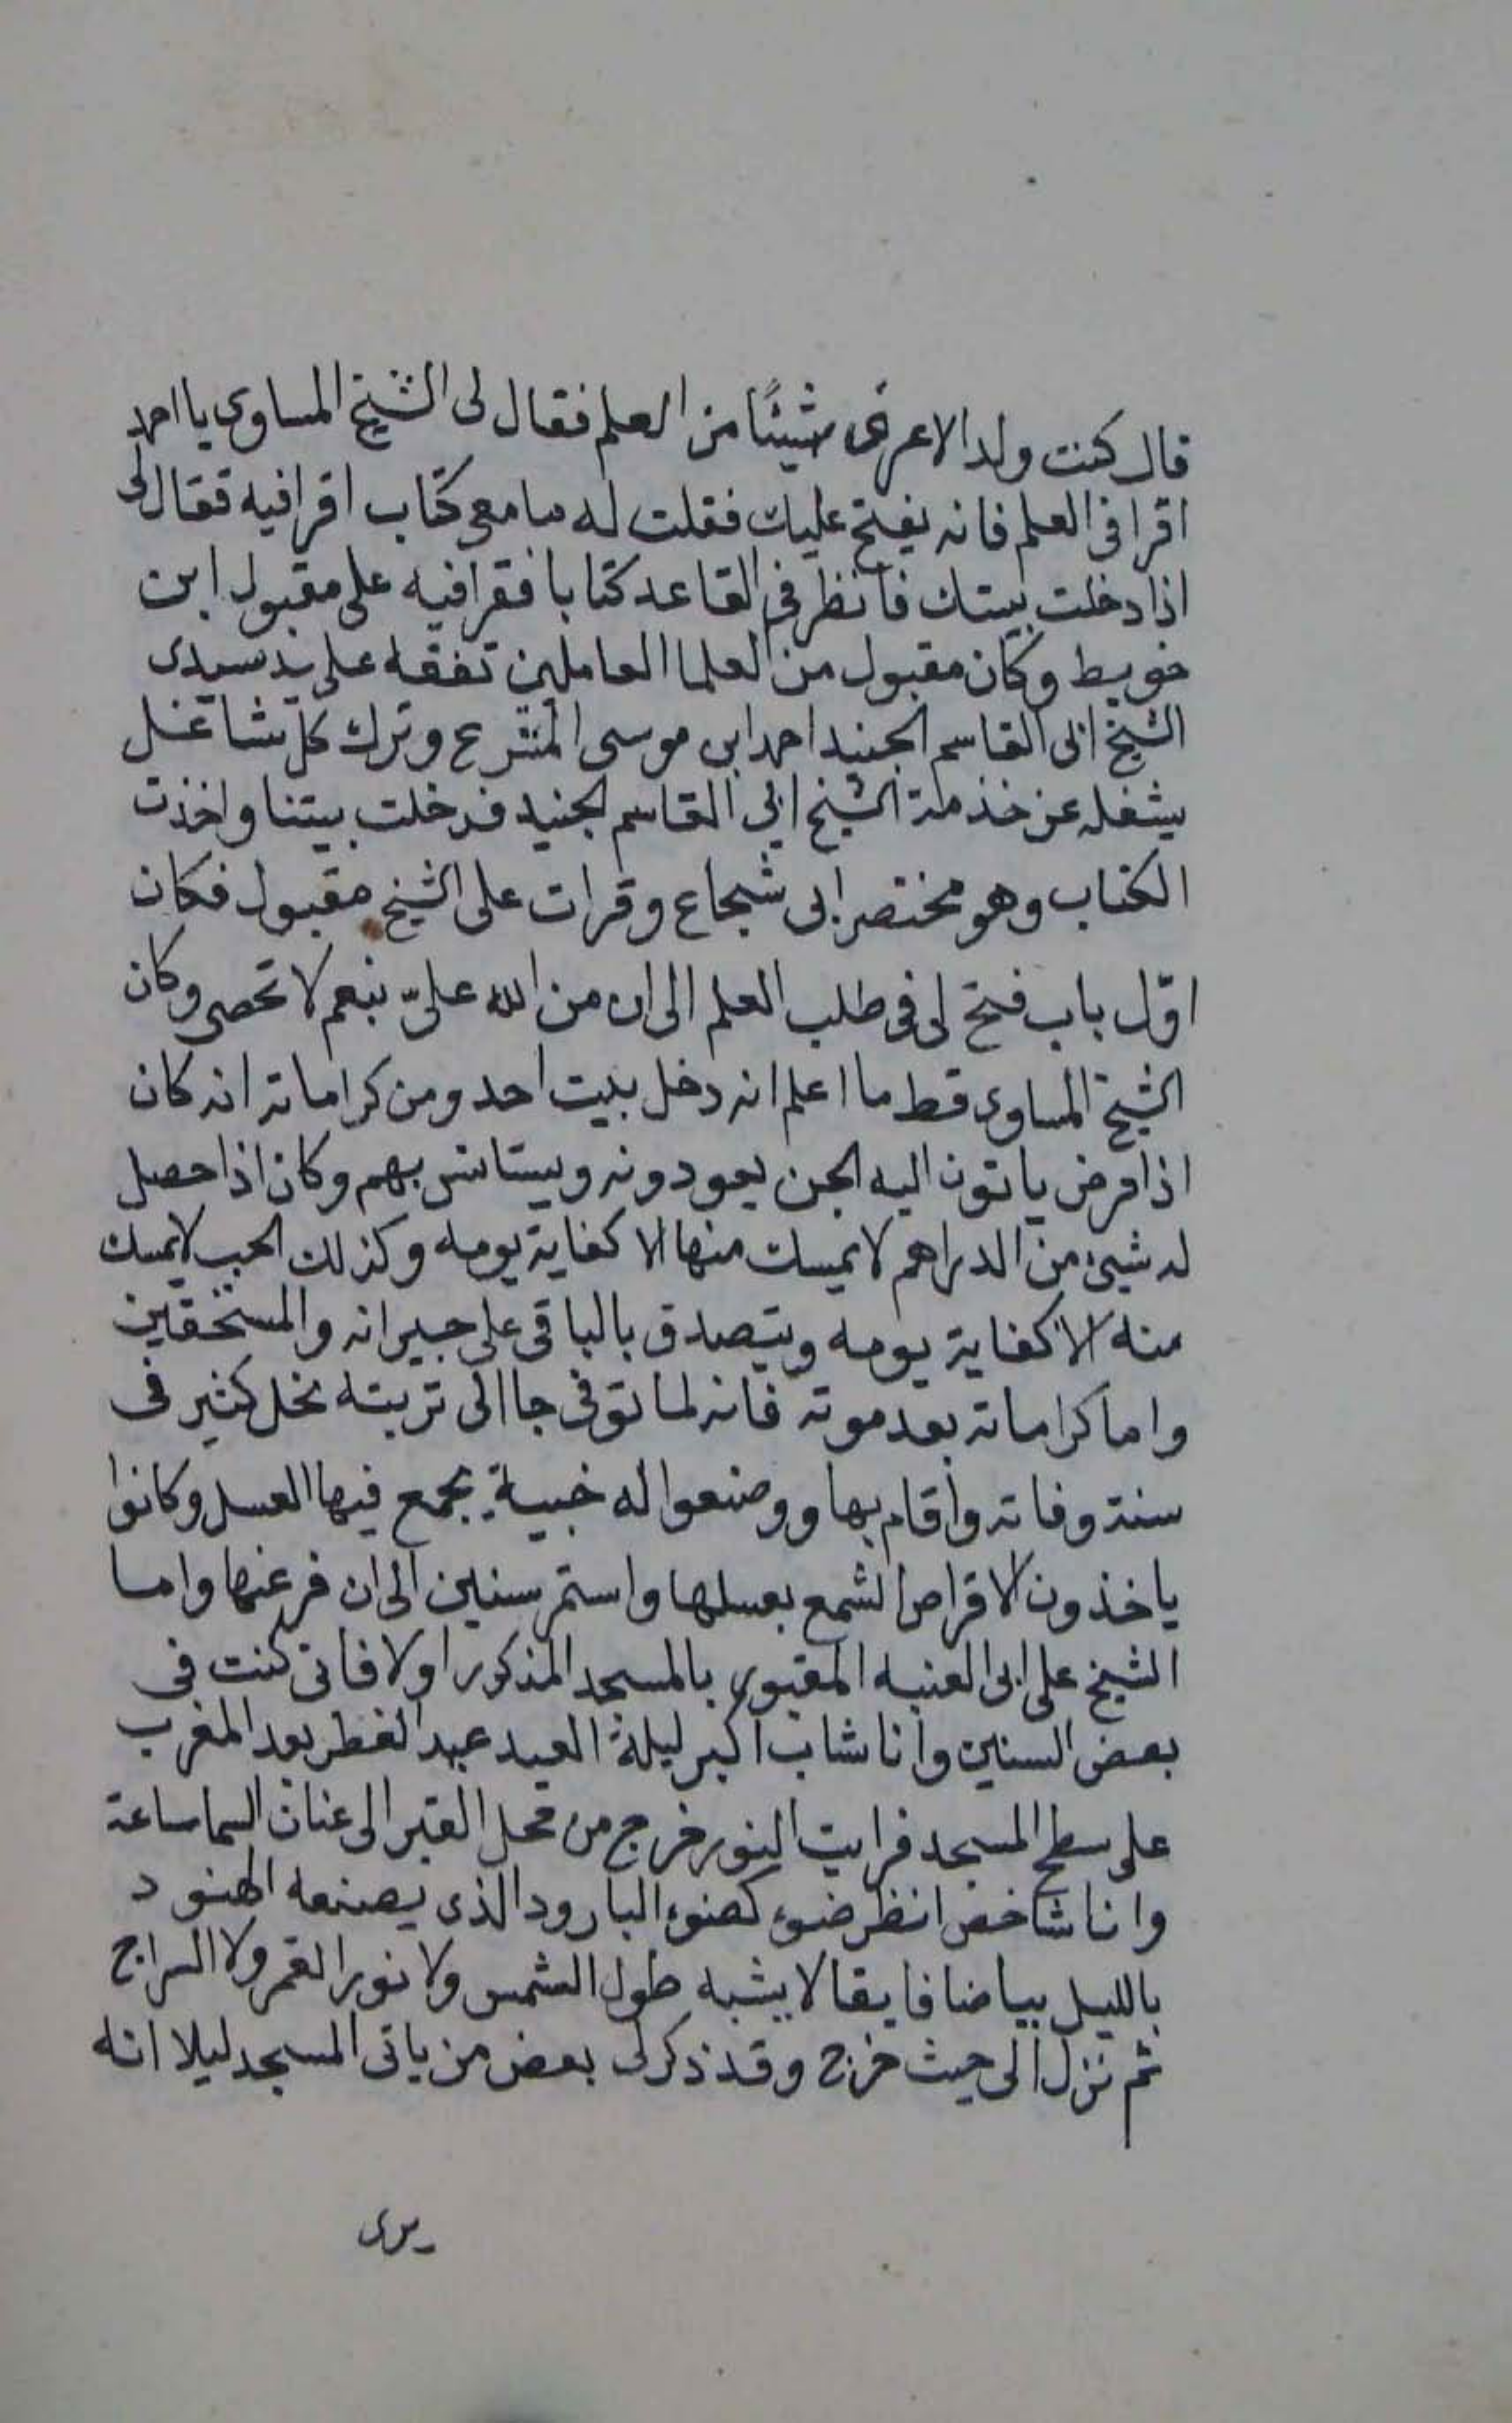 قال كنت ولدا لا عرفى شيئًا من العلم فقال لى الشيخ المساوى يا احمد
اقرا فى العلم فانه يفتح عليك فقلت له ما معى كتاب اقرا فيه فقال لى
اذا دخلت بيتك فانظر فى القاعد كتابا فقرا فيه على مقبول ابن
خويط وكان مقبول من العلما العاملين تفقه على يد سيدى
الشيخ ابى القاسم الجنيد احمد ابن موسى المشرع وترك كل شاغل
يشغله عن خدمة الشيخ ابى القاسم الجنيد فدخلت بيتنا واخذت
الكتاب وهو مختصر ابى شجاع وقرات على الشيخ مقبول فكان
اوّل باب فتح لى فى طلب العلم الى ان من الله علىّ بنعم لا تحصى وكان
الشيخ المساوى قط ما اعلم انه دخل بيت احد ومن كراماته انه كان
اذا مرض ياتون اليه الجن يعودونه ويستانس بهم وكان اذا حصل
له شيئ من الدراهم لا يمسك منها الا كفاية يومه وكذلك الحب لا يمسك
منه الا كفاية يومه ويتصدق بالباقى على جيرانه والمستحقين
واما كراماته بعد موته فانه لما توفى جا الى تربته نحل كثير فى
سنة وفاته واقام بها ووضعوا له خبية يجمع فيها العسل وكانوا
ياخذون الاقراص الشمع بعسلها واستمر سنين الى ان فرغها واما
الشيخ على ابى الغنيه المقبور بالمسجد المذكور اولا فانى كنت فى
بعض السنين وانا شاب اكبر ليلة العيد عيد الفطر بعد المغرب
على سطح المسجد فرايت النور خرج من محل القبر الى عنان السما ساعة
وانا شاخص انظر ضوء كضوء البارود الذى يصنعه الهنود
بالليل بياضا فايقا لا يشبه طول الشمس ولا نور القمر ولا السراج
ثم نزل الى حيث خرج وقد ذكر لى بعض من ياتى المسجد ليلا انه
يرى